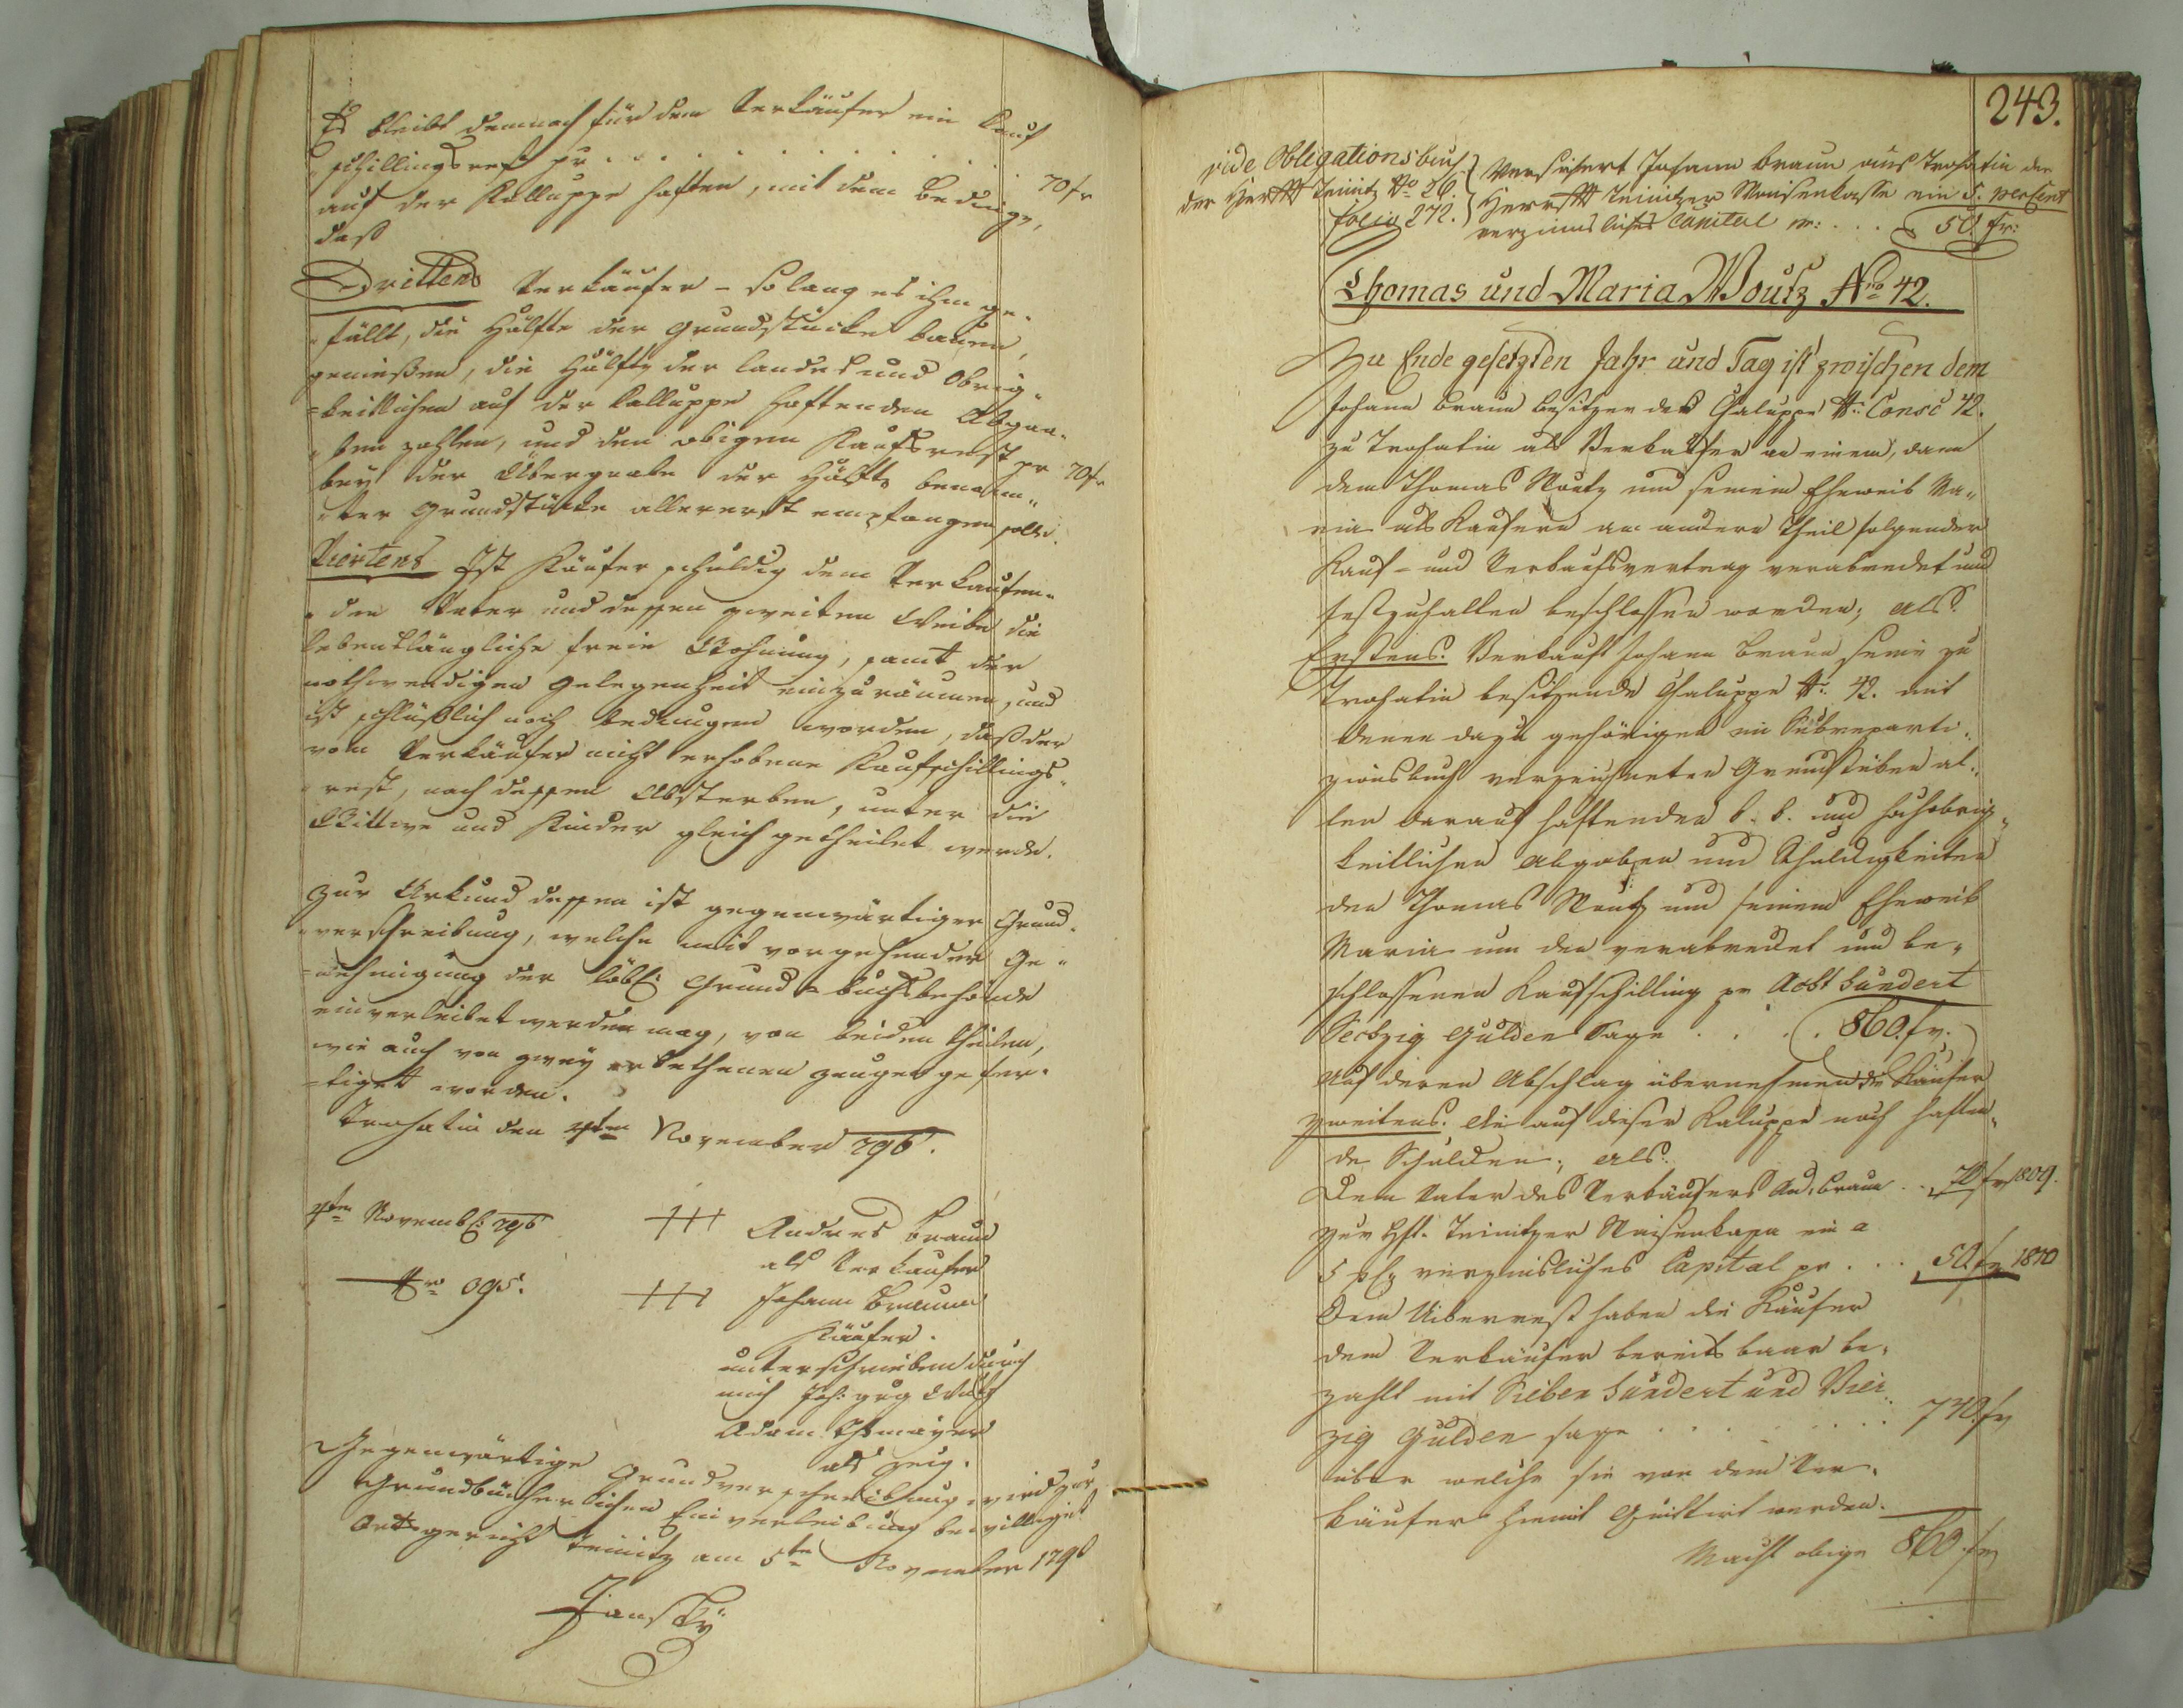 Es bleibt demnach für den Verkäufer ein Kauf
schillingsrest pr . . . . . . . . . . 70 fr
auf der Kalluppe haften, mit dem Bedinge,
daß
Drittens Verkäufer – so lang es ihm ge-
fällt, die Hälfte der Grundstücke bauen,
genießen, die Hälfte der landes und Obrig-
keitlichen auf der Kalluppe haftenden Abgaa-
ben zahlen, und den obigen Kaufsrest pr 70 fr
bey der Übergaabe der Hälfte benann-
ter Grundstücke allererst empfangen solle.
Viertens Ist Käufer schuldig dem Verkaufen-
den Vater und dessen zweiten Weibe die
lebenslängliche freie Wohnung, samt der
nothwendigen Gelegenheit einzuräumen, und
ist schlüßlich noch bedungen worden, daß der
vom Verkäufer nicht erhobene Kaufschillings-
rest, nach dessen Absterben, unter die
Wittwe und Kinder gleich getheilet werde.
Zur Urkund dessen ist gegenwärtiger Grund-
verschreibung, welche mit vorgehender Ge-
nehmigung der löbl: Grundbuchsbehörde
einverleibet werden mag, von beiden Theilen,
wie auch von zwey erbethenen Zeugen gefer-
tiget worden.
Trohatin den 4ten November 796.
4ten Novemb: 796 +++ Andres Braun
als Verkaufer
Nro 095. +++ Johann Braun
Käufer.
unterschrieben durch
mich Joh:
Adam
als Zeug.
Gegenwärtige Grundverschreibung wird zur
Grundbücherlichen Einverleibung bewilliget
Ortsgericht Teinitz am 5te November 1796
Jansky
243.
vide Obligationsbuch
der Herrsch Teinitz No 26.
Folio 272.
Versichert Johann Braun aus Trohatin der
Herrsch Teinitzer Waisenkasse ein 5. perCent
verzinsliches Capital pr: . . . 50. fr:
Thomas und Maria Woutz Nro 42.
Zu Ende gesetzten Jahr und Tag ist zwischen dem
Johann Braun Besitzer der Chaluppe No Consc 42.
zu Trohatin als Verkäufer an einem, dann
dem Thomas Woutz und seinem Eheweib Ma-
ria als Kaufern am andern Theil folgender
Kauf- und Verkaufsvertrag verabredet und
festzuhalten beschlossen worden; als
Erstens. Verkauft Johann Braun seine zu
Trohatin besitzende Chaluppe No. 42. mit
denen dazu gehörigen im Subreparti-
zionsbuch verzeichneten Grundstücken al-
len darauf haftenden k. k. und hochobrig-
keitlichen Abgaben und Schuldigkeiten
den Thomas Woutz und seinem Eheweib
Maria um den verabredet und be-
schlossenen Kaufschilling pr Acht hundert
Sechzig Gulden Sage . . . . 860. fr.
Auf deren Abschlag übernehmen die Käufer
Zweitens. die auf dieser Kaluppe noch haften-
de Schulden, als
Dem Vater des Verkäufers And. Braun . . 70 fr 1809.
Zur Hft. Teinitzer Waisenkassa ein a
5 pC verzinsliches Capital pr . . . 50. fr 1810
Dem Uiberrest haben die Käufer
dem Verkäufer bereits baar be-
zahlt mit Sieben hundert und Vier-
zig Gulden sage . . . . . . . 740. fr
über welche sie von dem Ver-
käufer hiemit Quittirt werden.
Macht obige 860. fr